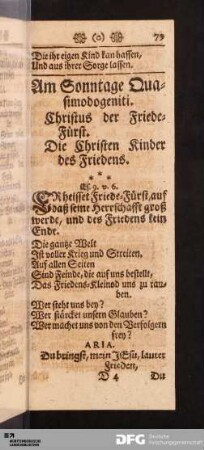 (o) 79
Die ihr eigen Kind kan hassen,
Und aus ihrer Sorge lassen.
Am Sonntage Qua-
simodogeniti.
Christus der Friede-
Fürst.
Die Christen Kinder
des Friedens.
* * *
Es. 9. v. 6.
ER heisset Friede-Fürst, auf
daß seine Herrschafft groß
werde, und des Friedens kein
Ende.
Die gantze Welt
Ist voller Krieg und Streiten,
Auf allen Seiten
Sind Feinde, die auf uns bestellt,
Das Friedens-Kleinod uns zu rau-
ben.
Wer steht uns bey?
Wer stärcket unsern Glauben?
Wer machet uns von den Verfolgern
frey?
ARIA.
Du bringst, mein JEsu, lauter
Frieden,
D 4 Du
DFG Deutsche
Forschungsgemeinschaft